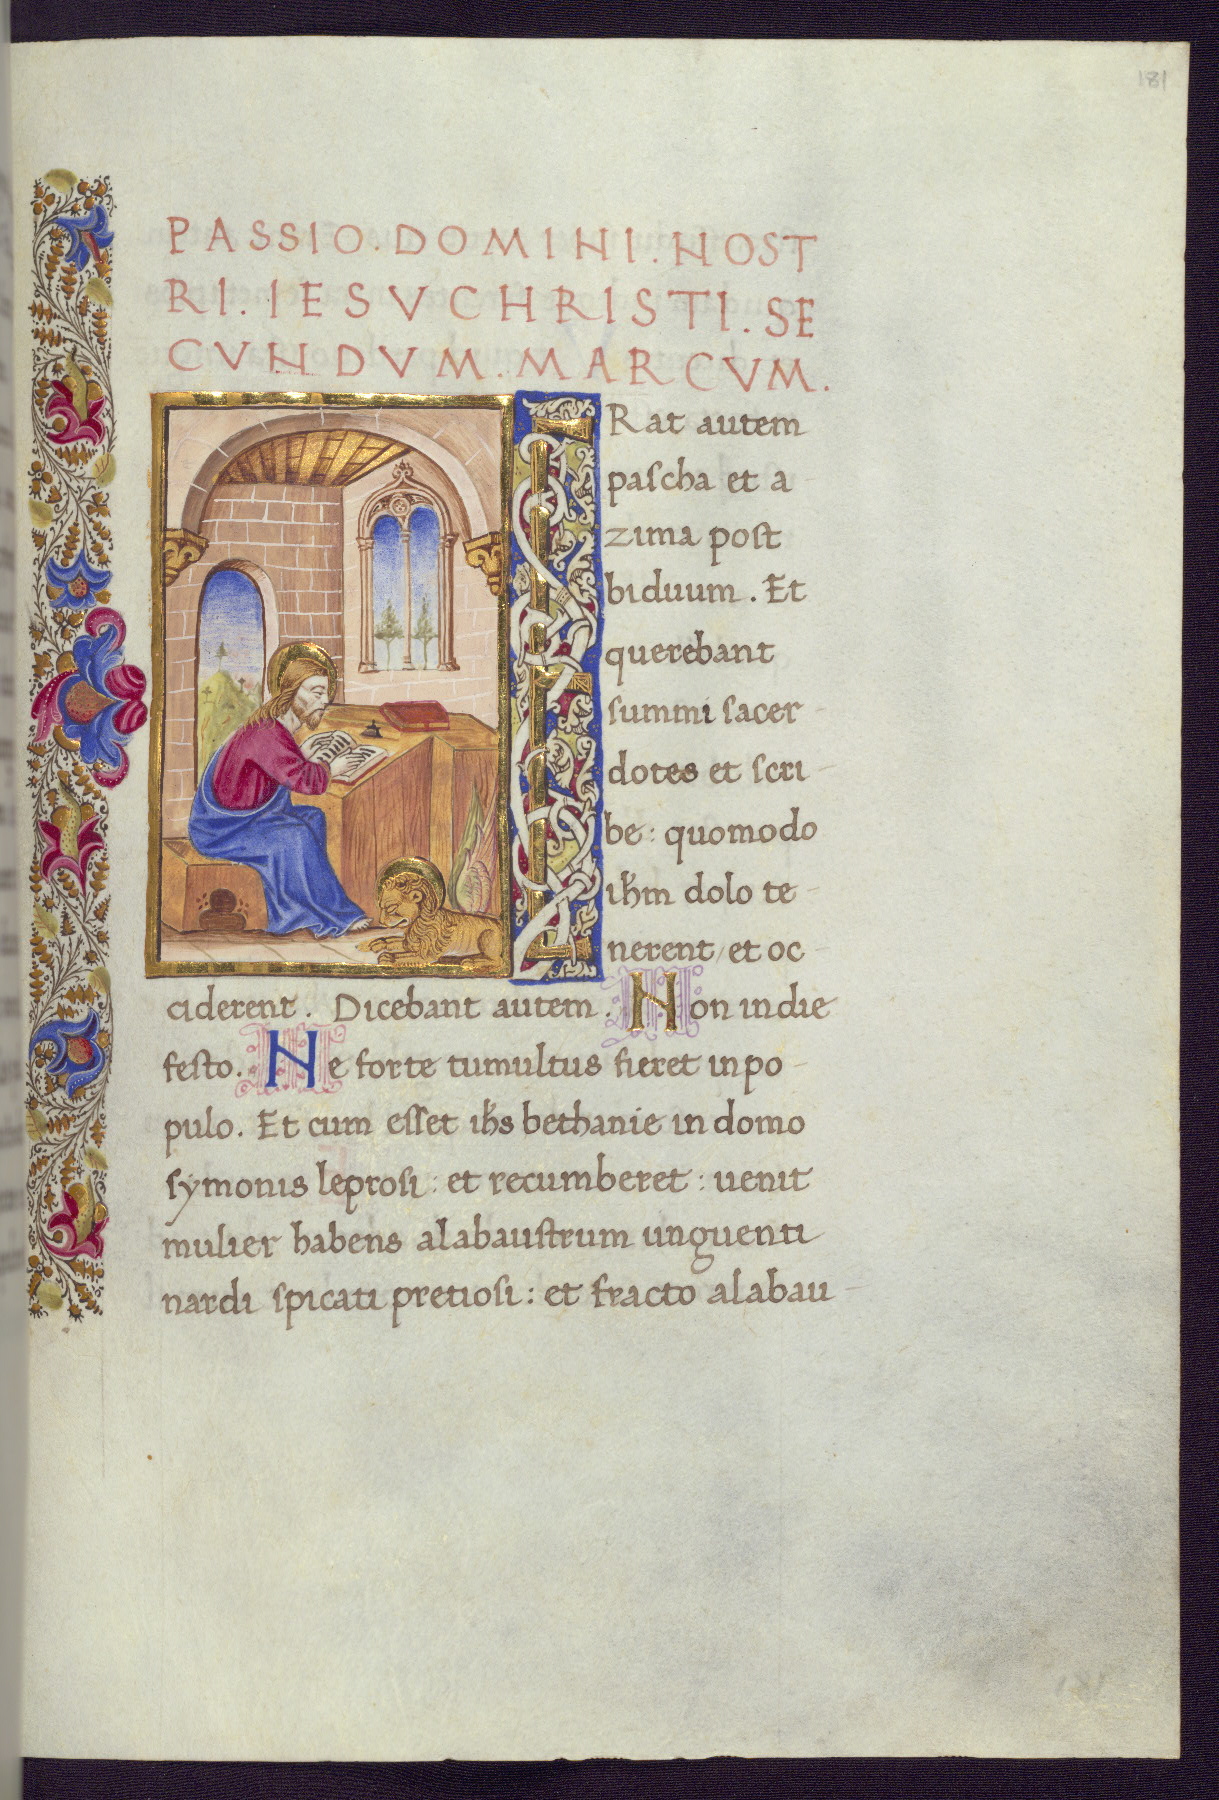 181
PASSIO.DOMINI.NOST
RI.IESV CHRISTI.SE
CVNDVM.MARCVM.
ERat autem
paſcha et a
zima poſt
biduum. Et
querebant
ſummi ſacer
dotes et ſcri
be: quomodo
ihm dolo te
nerent, et oc
ciderent. Dicebant autem. Non in die
feſto. Ne forte tumultus fieret in po
pulo. Et cum eſſet ihs bethanie in domo
ſymonis leproſi: et recumberet: uenit
mulier habens alabauſtrum unguenti
nardi ſpicati pretioſi: et fracto alabau